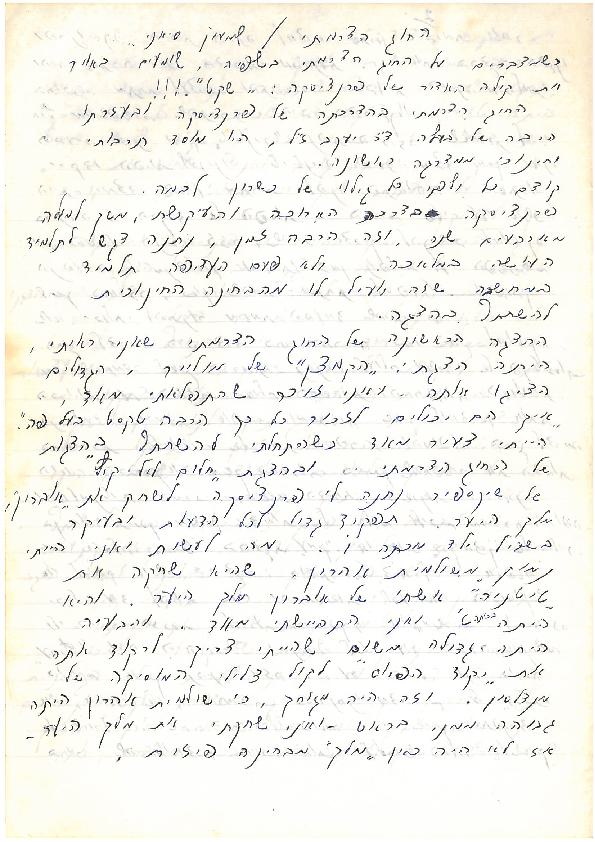 החוג הדרמתי / שמעון סיאני
כשמדברים על החוג הדרמתי בשפיה, שומעים באויר
את קולה האדיר של פרנציסקה: "שקט"!!!
החוג הדרמתי בהדרכתה של פרנציסקה ובעזרתו
הרבה של בעלה יעקב ז"ל, הוא מוסד תרבותי
וחינוכי ממדרגה ראשונה.
קודם כל ולפני כל גילוי של כשרון לבמה.
פרנציסקה בדרכה הארוכה והעיקשת, משך למעלה
מארבעים שנה, וזה הרבה זמן, נתנה דגש לתלמיד
העושה במלאכה. ולא פעם העדיפה תלמיד
במחשבה שזה יועיל לו מהבחינה החינוכית
להשתתף בהצגה.
ההצגה הראשונה של החוג הדרמתי שאני ראיתי,
היתה הצגת: "הקמצן" של מולייר, הגדולים
הציגו אותה, ואני זוכר שהתפלאתי מאוד,
"איך הם יכולים לזכור כל כך הרבה טקסט בעל פה".
הייתי צעיר מאוד כשהתחלתי להשתתף בהצגות
של החוג הדרמתי. ובהצגת "חלום ליל קיץ"
של שיקספיר נתנה לי פרנציסקה לשחק את "אוברון",
מלך היער. תפקיד גדול לכל הדעות ובעיקר
בשביל ילד מכתה ו'. מה לעשות ואני הייתי
נמוך משולמית אהרון, שהיא שחקה את
"טיטניה" אשתו של אוברון מלך היער. והיא
היתה בכתה ט' ואני התביישתי מאוד. והבעיה
היתה גדולה משום שהייתי צריך לרקוד אתה
את "ריקוד הפיוס" לקול צלילי המוסיקה של
מנדלסון. וזה היה מגוחך, כי שולמית אהרון היתה
גבוהה ממני בראש ואני שחקתי את מלך היער -
אז לא היה כאן "מלך" מבחינה פיזית.